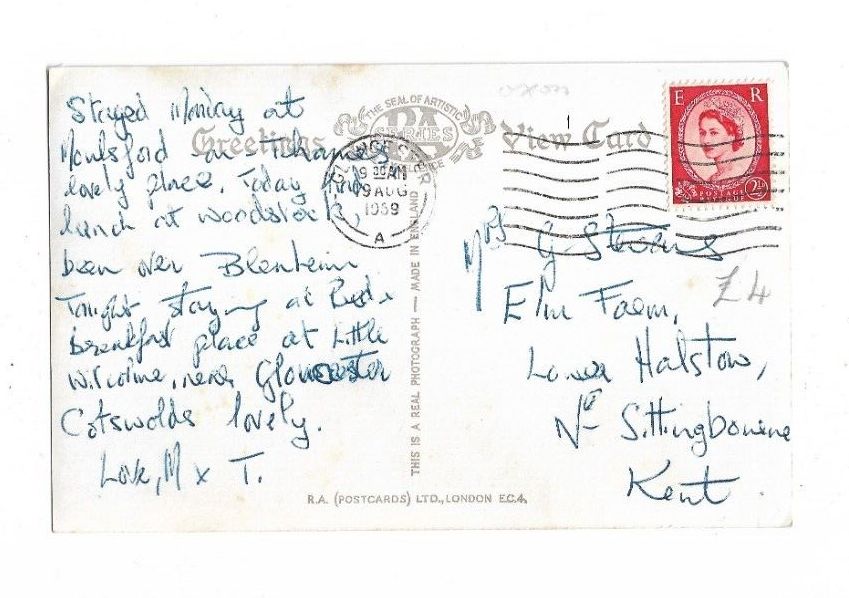 Greetings
THE SEAL OF ARTISTIC
RA
SERIES
View Card
E R
POSTAGE
2½
GLOUCESTER
9 AUG
1959
A
Stayed Monday at
Moulsford on Thames
lovely place. Today had
lunch at Woodstock,
been over Blenheim
Tonight staying at Bed &
breakfast place at Little
Witcombe, near Gloucester
Cotswolds lovely.
Love, M x T.
THIS IS A REAL PHOTOGRAPH — MADE IN ENGLAND
Mrs G Stevens
Elm Farm,
Lower Halstow,
Nr Sittingbourne
Kent.
£4
R.A. (POSTCARDS) LTD., LONDON E.C.4.